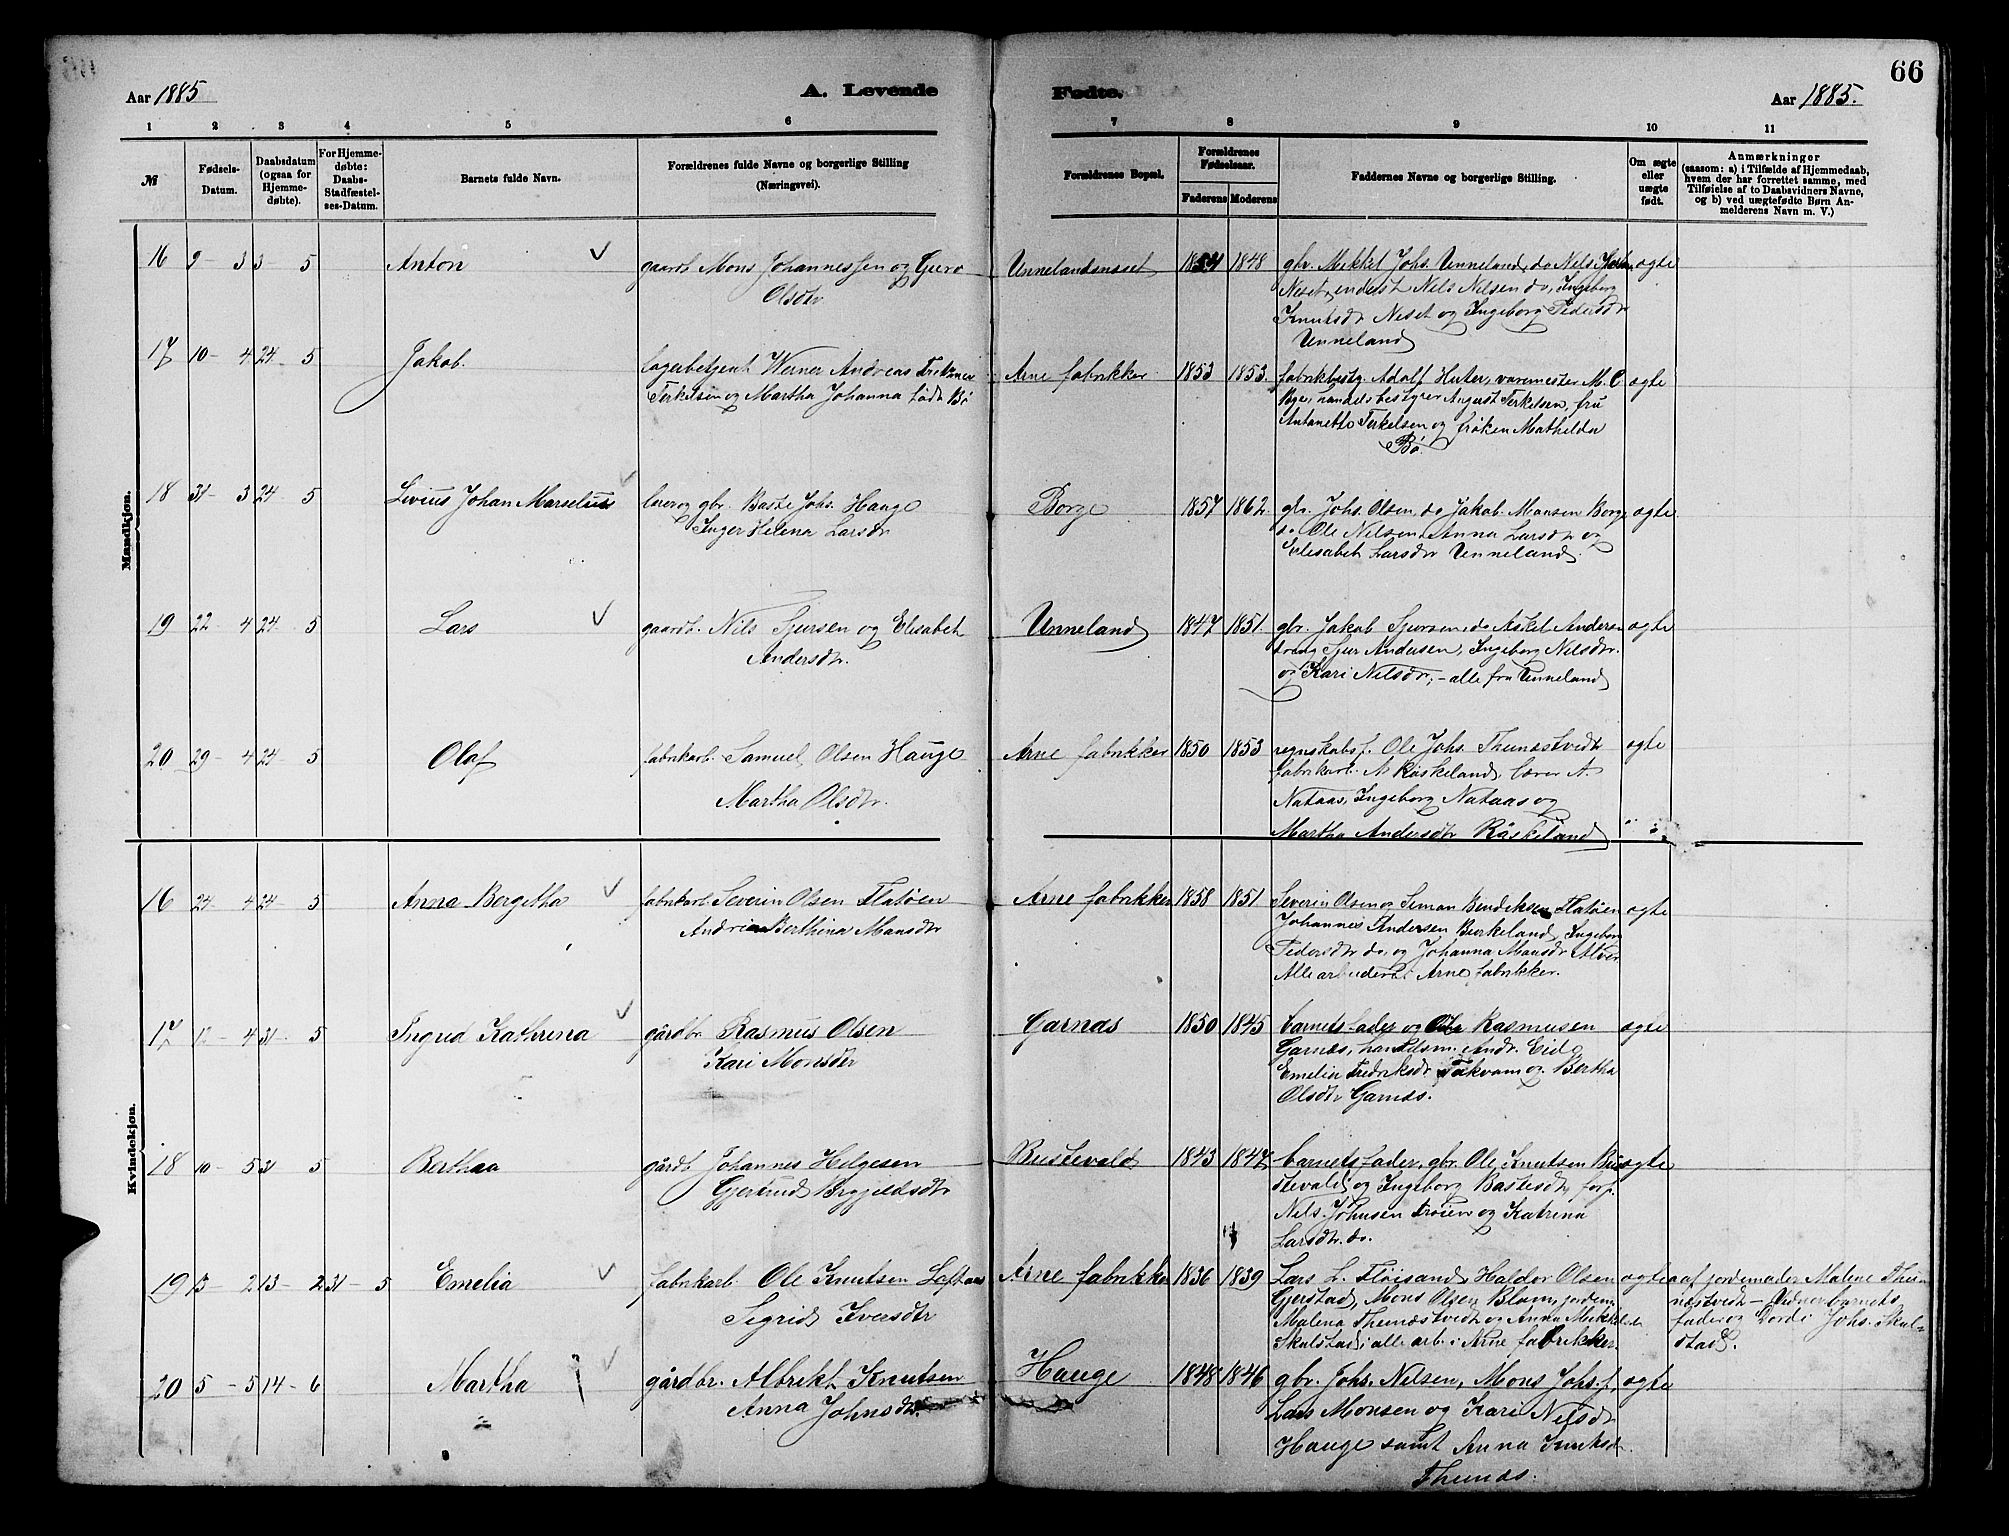 66
Aar 1885
A. Levende
Fødte.
Aar 1885.
1 2 3 4 5 6 7 8 9 10 11
№
Fødsels-
Datum.
Daabsdatum
(ogsaa for
Hjemme-
døbte).
For Hjemme-
døbte:
Daabs-
Stadfæstel-
ses-Datum.
Barnets fulde Navn.
Forældrenes fulde Navne og borgerlige Stilling
(Næringsvei).
Forældrenes Bopæl.
Forældrenes
Fødselsaar.
Faderens Moderens
Faddernes Navne og borgerlige Stilling.
Om ægte
eller
uægte
født.
Anmærkninger
(saasom: a) i Tilfælde af Hjemmedaab,
hvem der har forrettet samme, med
Tilføielse af to Daabsvidners Navne,
og b) ved uægtefødte Børn An-
melderens Navn m. V.)
Mandkjøn.
16 9 - 3 3 5 Anton
gaardb. Mons Johannessen og Guro
Olsdtr
Unnelandsneset 1854 1848
gbr. Mikkel Johs. Unneland, do Nils
Neset, enderst Nils Nilsen do, Ingeborg
Knutsdr Neset og Ingeborg Pedersdr
Unneland
ægte
17 10 - 4 24 - 5 Jakob.
lagerbetjent Werner Andreas
Terkelsen og Martha Johanna født Bø
Arne fabrikker 1853 1853.
fabrikbestg. Adolf Huter, varemester M. C
Bge, handelsbestyrer August Terkelsen, fru
Antonette Terkelsen og frøken Mathilda
Bø.
ægte
18 31 - 3 24 5 Livius Johan Marselius
lærer og gbr. Baste Johs. Hauge
Inger Helena Larsdr
Borge 1857 1862.
gbr. Johs. Olsen, do Jakob Monsen Borge
do Ole Nilsen, Anna Larsdr og
Elisabet Larsdr Unneland.
ægte
19 22 4 24 5 Lars
gaardb. Nils Sjursen og Elisabet
Andersdtr.
Unneland 1847 1851.
gbr. Jakob Sjursen, do Askel Anders
dreng Sjur Andersen, Ingeborg Nilsdtr.
og Kari Nilsdr, - alle fra Unneland
ægte
20 29 - 4 24 5 Olaf
fabrikarb. Samuel Olsen Hauge
Martha Olsdtr.
Arne fabrikker 1850 1853
regnskabsf. Ole Johs. Thunestvedt
fabrikarb. A Røskeland, lærer A.
Nataas, Ingeborg Nataas og
Martha Andersdtr Røskeland
ægte
Kvindekjøn.
16 24 - 4 24 5 Anna Bergitha
fabrikarb. Severin Olsen Flatøen
Berthina Mansdtr
Arne fabrikker 1858 1851
Severin Olsen og Simon Bendiksen Flatøen
Johannes Andersen Birkeland, Ingeborg
Pedersdtr do, og Johanna Mansdr Alver
Alle arbeidere i Arne fabrikker.
ægte
17 12 - 4 31 5 Ingrid Kathrina
gårdbr Rasmus Olsen
Kari Monsdtr
Garnæs 1850 1845
barnets fader og Ole Rasmusen
Garnæs, handelsm. Andr. Eid
Emelia Fredriksdr Takvam og Bertha
Olsdtr Garnæs.
ægte
18 10 - 5 31 5 Bertha
gårdb Johannes Helgesen
Gjertrud Brynjeldsdtr
Bustevold 1843 1847
barnets fader, gbr. Ole Knutsen Bus
tevald og Ingeborg Bastesdtr, forp.
Nils Johnsen Trøien og Katrina
Larsdtr do.
ægte
19 13 - 2 13 - 2 31 - 5 Emelia
fabrikarb Ole Knutsen Loftaas
Sigrid Iversdtr
Arne fabrikker 1836 1839
Lars L. Fløisand, Haldor Olsen
Gjerstad, Mons Olsen Blom, jordem.
Malena Thunæstvedt og Anna
Skulstad, alle arb. i Arne fabrikker.
ægte
af jordemoder Malene Thu
næstvedt - Vidner barnets
fader og Dordi Johs. Skul-
stad.
20 5 - 5 14 - 6 Martha
gårdbr. Albrikt Knutsen
Anna Johnsdtr.
Hauge 1848 1846
gbr. Johs. Nilsen, Mons Johs.f,
Lars Monsen og Kari Nilsdr
Hauge samt Anna
Thunæs.
ægte